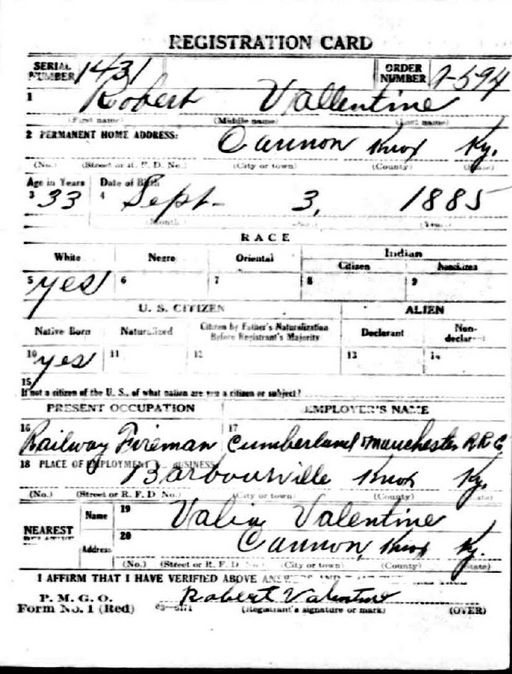 REGISTRATION CARD
SERIAL NUMBER 1431 ORDER NUMBER A-594
1 Robert Vallentine
(First name) (Middle name) (Last name)
2 PERMANENT HOME ADDRESS: Cannon Knox Ky.
(No.) (Street or R. F. D. No.) (City or town) (County) (State)
Age in Years Date of Birth
3 33 4 Sept- 3, 1885
Month (Year)
RACE
White Negro Oriental Indian
Citizen Noncitizen
5 yes 6 7 8 9
U. S. CITIZEN ALIEN
Native Born Naturalized Citizen by Father's Naturalization Before Registrant's Majority Declarant Non-declarant
10 yes 11 12 13 14
15
If not a citizen of the U. S., of what nation are you a citizen or subject?
PRESENT OCCUPATION EMPLOYER'S NAME
16 Railway Fireman 17 Cumberland & Manchester R.R.C.
18 PLACE OF EMPLOYMENT BUSINESS Barbourville Knox Ky.
(No.) (Street or R. F. D No.) (City or town) (County) (State)
NEAREST RELATIVE Name 19 Valentine
Address 20 Cannon, Knox Ky.
(No.) (Street or R. F. D No.) (City or town) (County) (State)
I AFFIRM THAT I HAVE VERIFIED ABOVE ANSWERS AND THAT THEY
P. M. G. O. Robert Valentine
Form No. 1 (Red) (Registrant's signature or mark) (OVER)